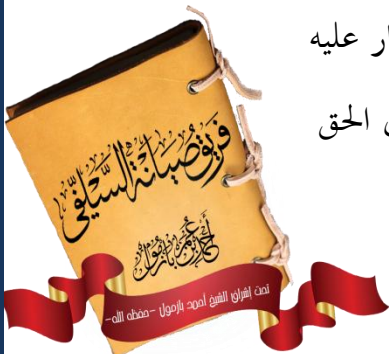 ار عليه
الحق
فريق صيانة السلفي
أحمد بن عمر بازمول
تحت إشراف الشيخ أحمد بازمول -حفظه الله-